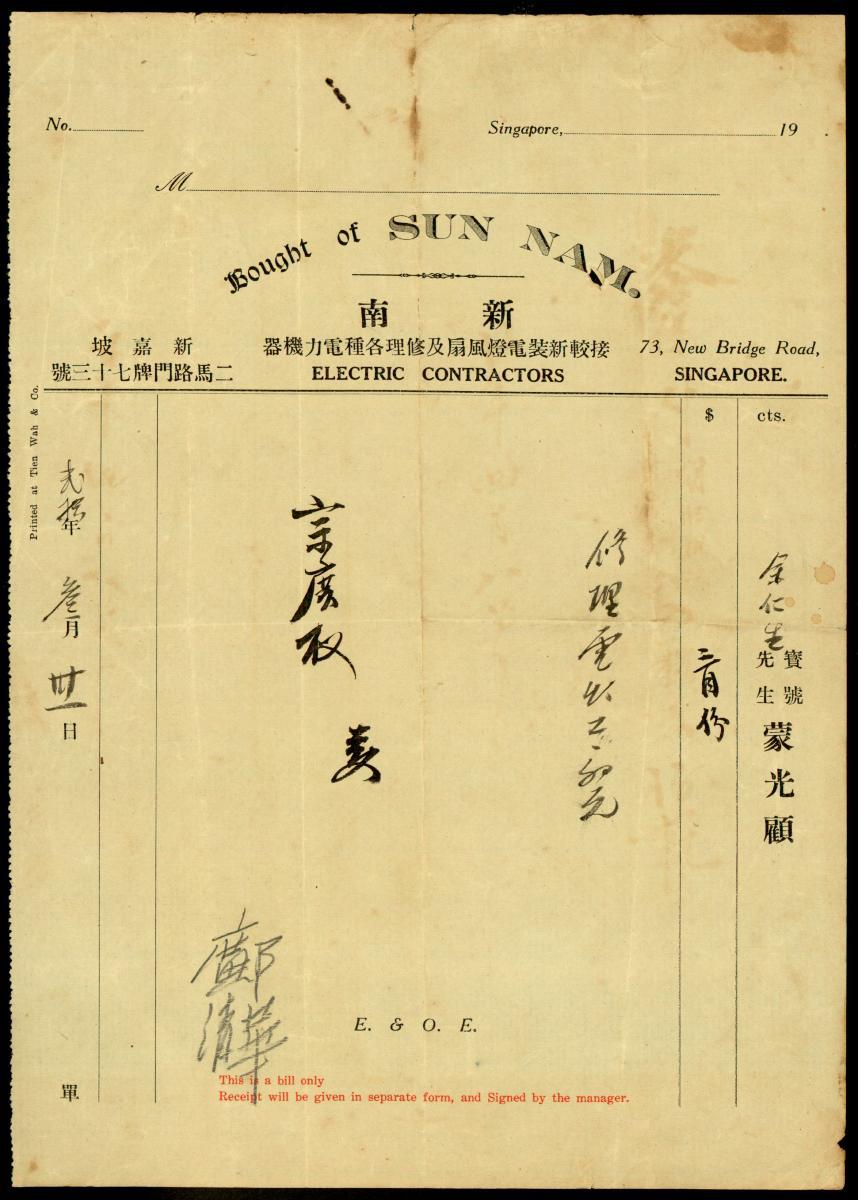 No.
Singapore, 19
M
Bought of SUN NAM.
新南
接較新裝電燈風扇及修理各種電力機器
ELECTRIC CONTRACTORS
新嘉坡
二馬路門牌七十三號
73, New Bridge Road,
SINGAPORE.
$ cts.
余仁生
寶號
先生
蒙光顧
三月份
修理電火工
宗廣收
鄺清華
年叁月卅一日
單
E. & O. E.
This is a bill only
Receipt will be given in separate form, and Signed by the manager.
Printed at Tien Wah & Co.